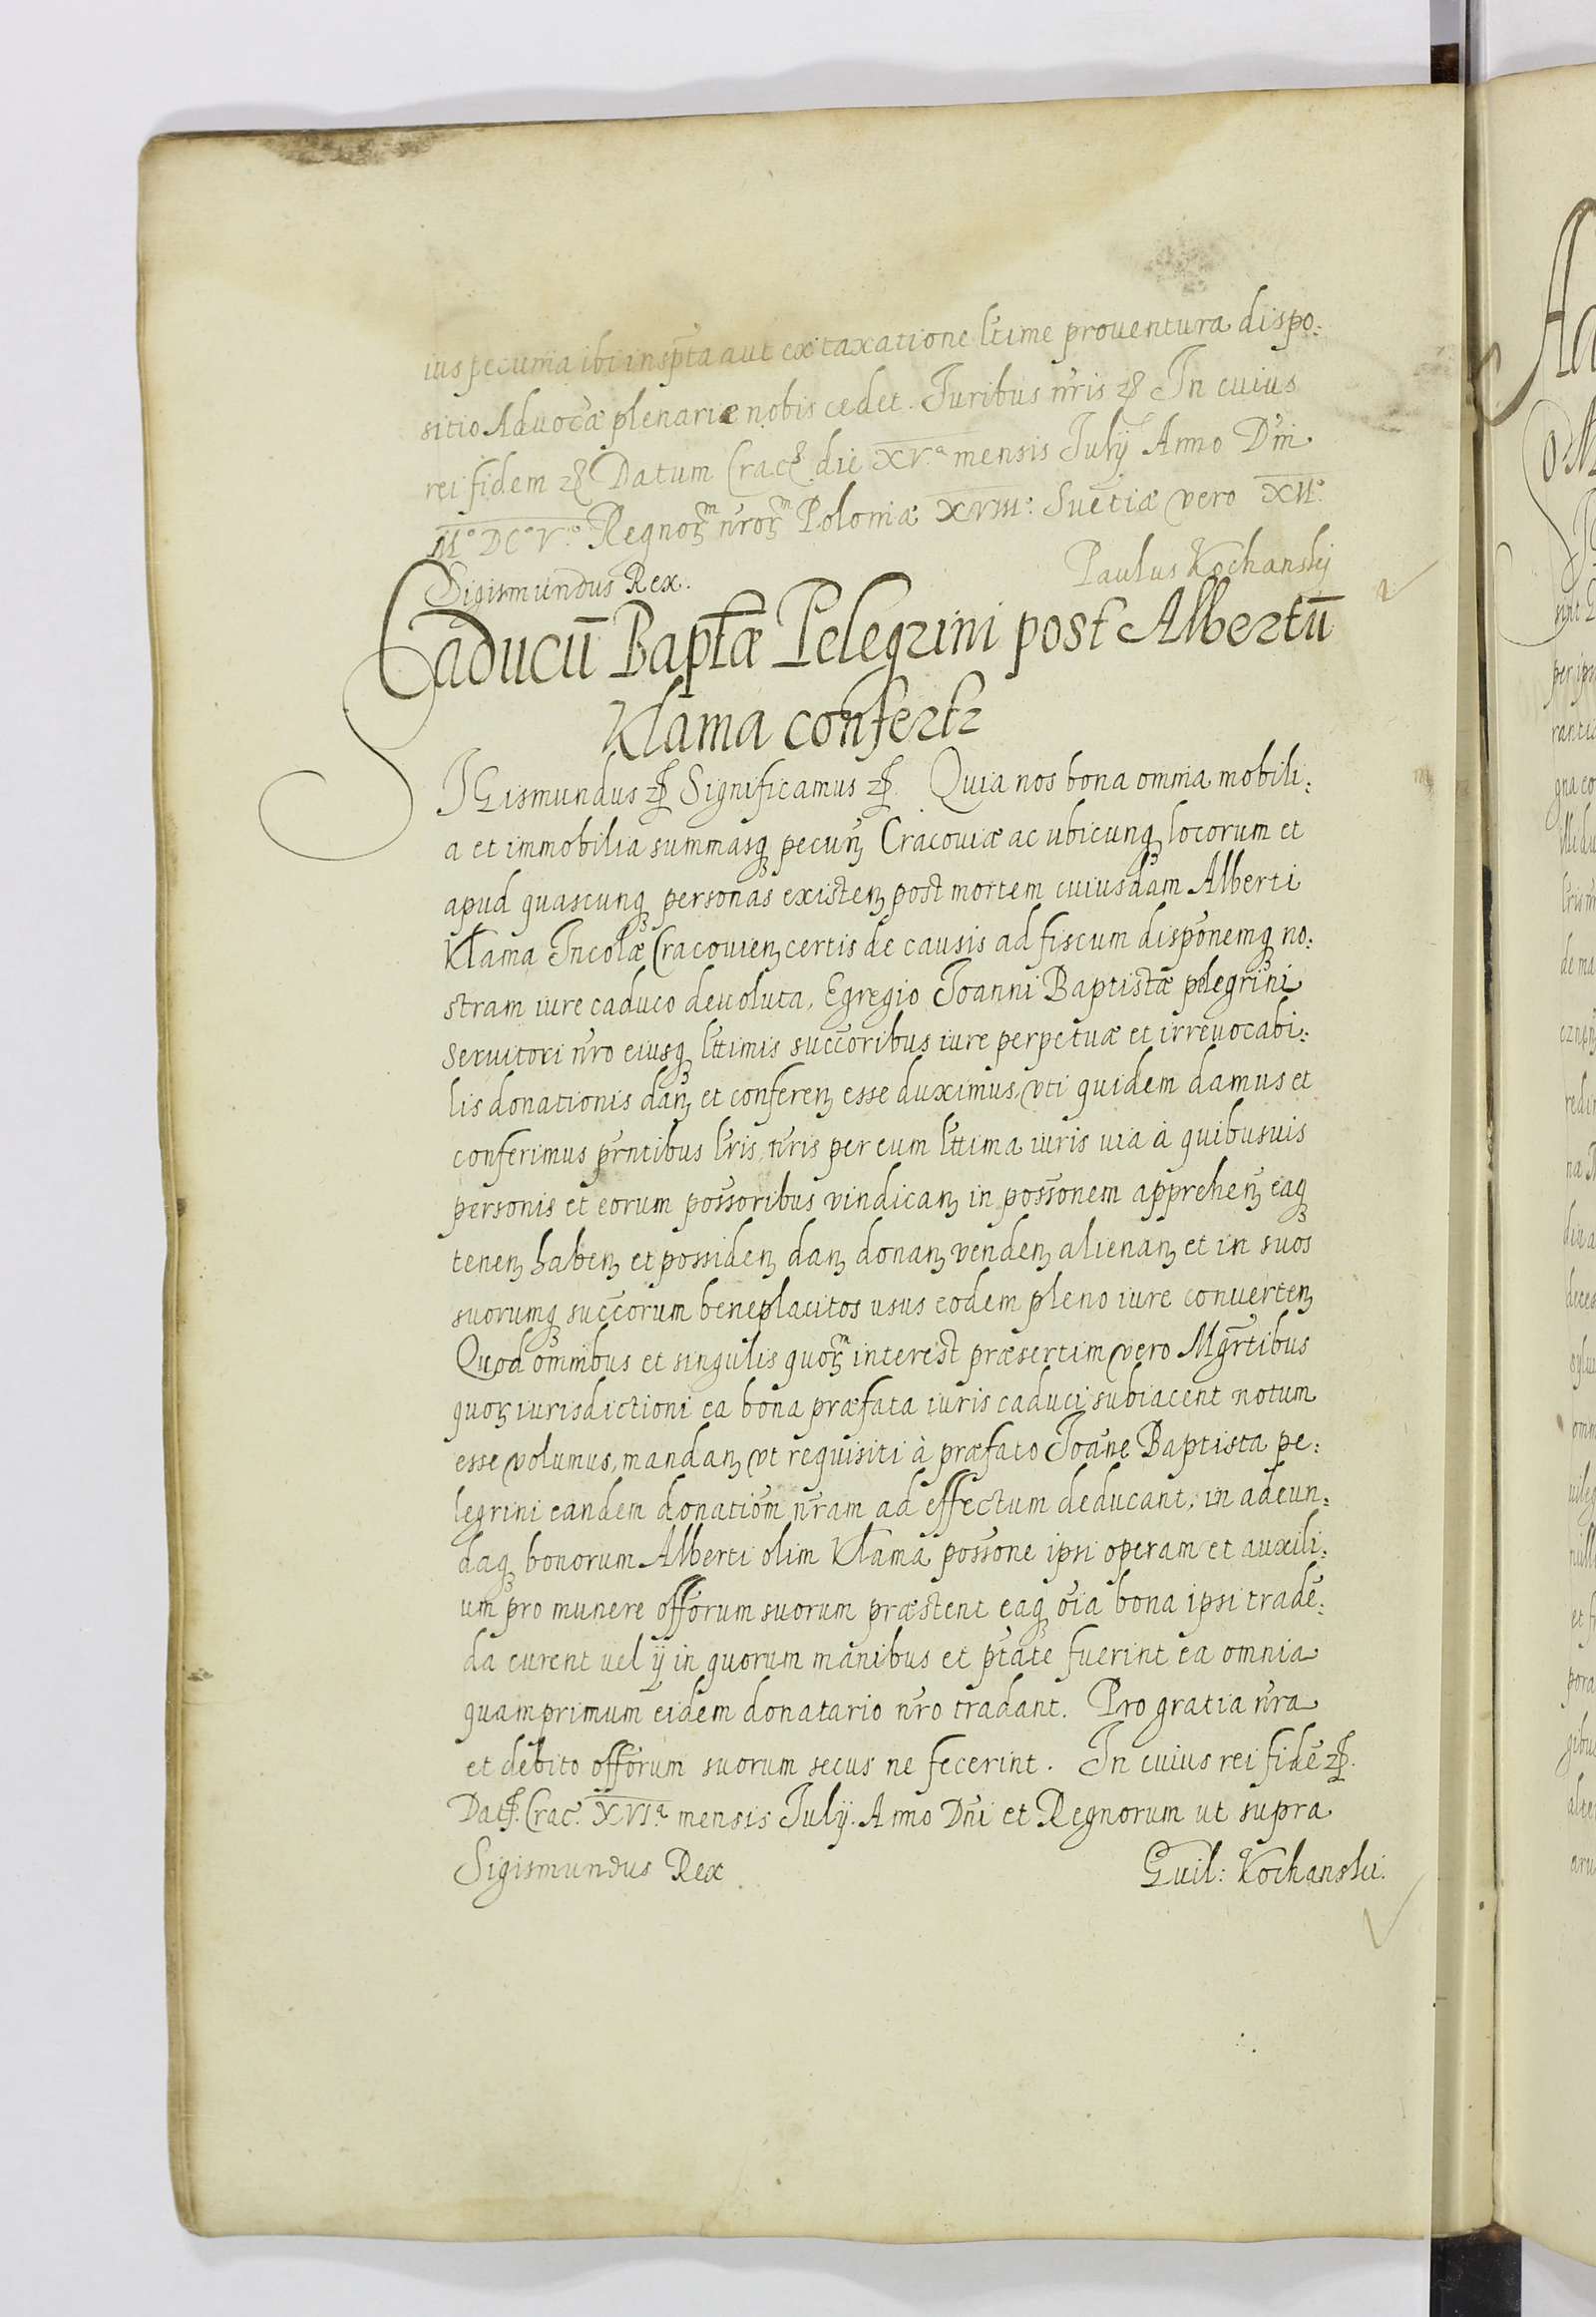 ius pecunia ibi inspta aut ex taxatione ltime prouentura dispo:
sitio Aduocæ plenariæ nobis cedet. Juribus nris etc In cuius
rei fidem etc Datum Crac. die XV.ª mensis Julÿ Anno Dni
Mº DCº Vº. Regnorꝫ nrorꝫ Poloniæ XVIIIº. Suetiæ vero XIIº.
Sigismundus Rex. Paulus Kochanskÿ
Caducū Baptæ Pelegrini post Albertū
Klama confertr
SIGismundus etc Significamus etc. Quia nos bona omnia mobili:
a et immobilia summasqꝫ pecunꝫ Cracouiæ ac ubicunqꝫ locorum et
apud quascunqꝫ personas existenꝫ post mortem cuiusdam Alberti
Klama Incolæ Cracouienꝫ certis de causis ad fiscum disponemqꝫ no:
stram iure caduco deuoluta, Egregio Joanni Baptistæ pelegrini
seruitori nro eiusqꝫ lttimis succoribus iure perpetuæ et irreuocabi:
lis donationis danꝫ et conferenꝫ esse duximus, vti quidem damus et
conferimus prntibus lris nris per eum lttima iuris uia à quibusuis
personis et eorum possoribus vindicanꝫ in possonem apprehenꝫ eaqꝫ
tenenꝫ habenꝫ et possidenꝫ danꝫ donanꝫ vendenꝫ alienanꝫ et in suos
suorumqꝫ succorum beneplacitos usus eodem pleno iure conuertenꝫ
Quod omnibus et singulis quorꝫ interest præsertim vero Mgrtibus
quorꝫ iurisdictioni ea bona præfata iuris caduci subiacent notum
esse volumus, mandanꝫ vt requisiti à præfato Joāne Baptista pe:
legrini eandem donationm nram ad effectum deducant, in adeun:
daqꝫ bonorum Alberti olim Klama possone ipsi operam et auxili:
um pro munere offorum suorum præstent eaqꝫ oia bona ipsi tradē:
da curent uel ÿ in quorum manibus et ptate fuerint ea omnia
quamprimum eidem donatario nro tradant. Pro gratia nra
et debito offorum suorum secus ne fecerint. In cuius rei fidē etc.
Dat. Crac. XVIª mensis Julÿ. Anno Dni et Regnorum ut supra
Sigismundus Rex Guil: Kochanski.